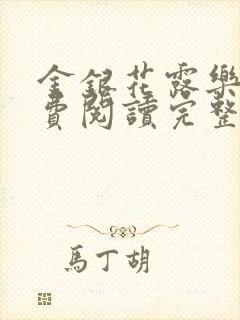 金銀花露樂
費閱讀完整
馬丁胡